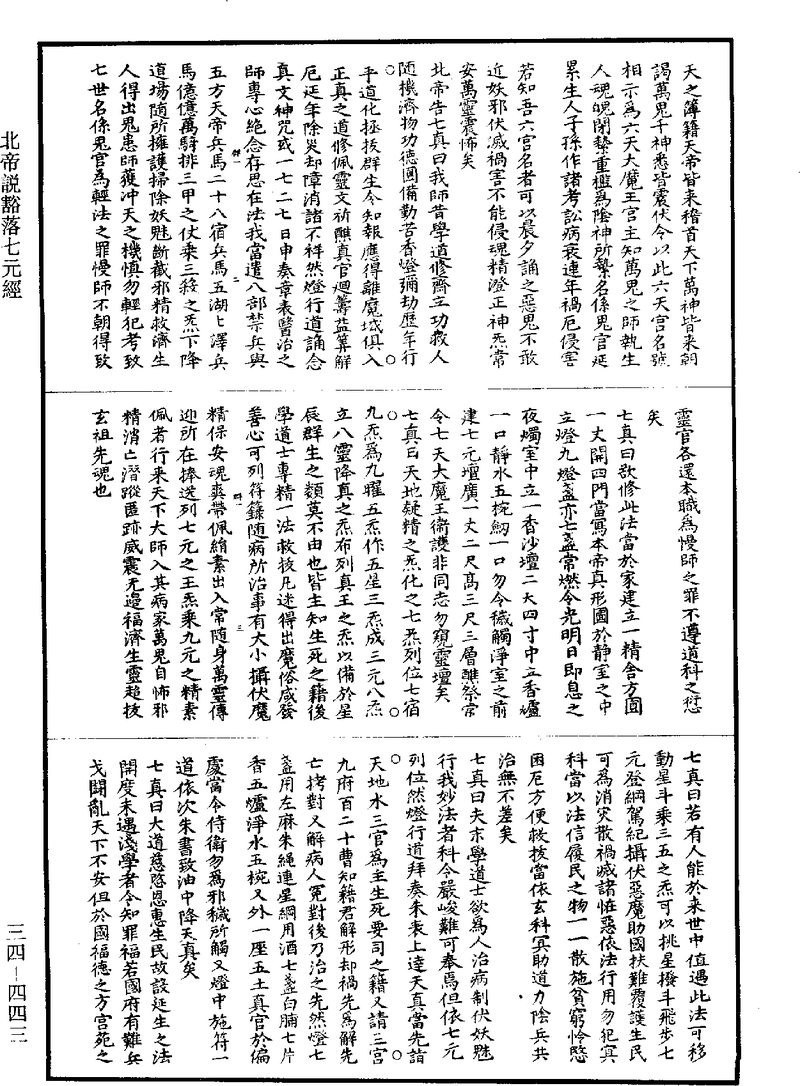 北帝説豁落七元經
天之簿籍天帝皆来稽首天下萬神皆来朝
謁萬鬼千神悉皆震伏今以此六天宫名號
相示為六天大魔王宫主知萬鬼之師執生
人魂魄閉摯重檻為陰神所繫名係鬼官延
累生人子孫作諸考訟病衰連年禍厄侵害
若知吾六宫名者可以晨夕誦之惡鬼不敢
近妖邪伏滅禍害不能侵魂精澄正神炁常
安萬靈震怖矣
北帝告七真曰我師昔學道修齋立功救人
随機濟物功德圓備勤苦香燈彌劫歷年行
乎道化拯拔群生令知報應得離魔域俱入
正真之道修佩靈文祈醮真官廻籌益筭解
厄延年除災却障消諸不祥然燈行道誦念
真文神咒或一七二七日申奏章表醫治之
師專心絶念存思在法我當遣八部禁兵與
五方天帝兵馬二十八宿兵馬五湖七澤兵
馬億億萬騎排三甲之仗乘三綫之炁下降
道場随所擁護掃除妖魅断截邪精救濟生
人得出鬼患師獲冲天之機慎勿輕犯考致
七世名係鬼官為輕法之罪慢師不朝得致
靈官各還本職為慢師之罪不遵道科之愆
矣
七真曰欲修此法當於家建立一精舍方圓
一丈開四門當寫本帝真形圖於静室之中
立燈九燈盞亦七盞常燃令光明日即息之
夜燭室中立一香沙壇二大四寸中立香爐
一口靜水五椀劒一口勿令穢觸淨室之前
建七元壇廣一丈二尺髙三尺三層醮祭常
令七天大魔王衛護非同志勿窺靈壇矣
七真曰天地凝精之炁化之七炁列位七宿
九炁為九曜五炁作五星三炁成三元八炁
立八靈降真之炁布列真王之炁以備於星
辰群生之類莫不由也皆主知生死之籍後
學道士專精一法救拔凡迷得出魔俗咸發
善心可列符籙随病所治事有大小攝伏魔
精保安魂爽帶佩絹素出入常随身萬靈傳
迎所在捧送列七元之王炁乘九元之精素
佩者行来天下大師入其病家萬鬼自怖邪
精消亡潛蹤匿跡威震无邉福濟生靈超拔
玄祖先魂也
七真曰若有人能於来世中值遇此法可移
動星斗乘三五之炁可以挑星撥斗飛步七
元登綱駕紀攝伏惡魔助國扶難覆護生民
可為消灾散禍滅諸恠惡依法行用勿犯冥
科當以法信履民之物一一散施貧窮怜愍
困厄方便救拔當依玄科冥助道力陰兵共
治無不差矣
七真曰夫求學道士欲為人治病制伏妖魅
行我妙法者科令嚴峻難可奉焉但依七元
列位然燈行道拜奏朱表上達天真當先詣
天地水三官為主生死要司之籍又請三官
九府百二十曹知籍君解形却禍先為解先
亡拷對又解病人冤對後乃治之先然燈七
盞用左麻朱繩連星綱用酒七盞白脯七片
香五爐淨水五椀又外一座五土真官於偏
處當令侍衛勿為邪穢所觸又燈中施符一
道依次朱書致油中降天真矣
七真曰大道慈悠恩惠生民故設延生之法
開度未遇淺學者令知罪福若國府有難兵
戈鬪亂天下不安但於國福徳之方宫苑之
三四－四四三